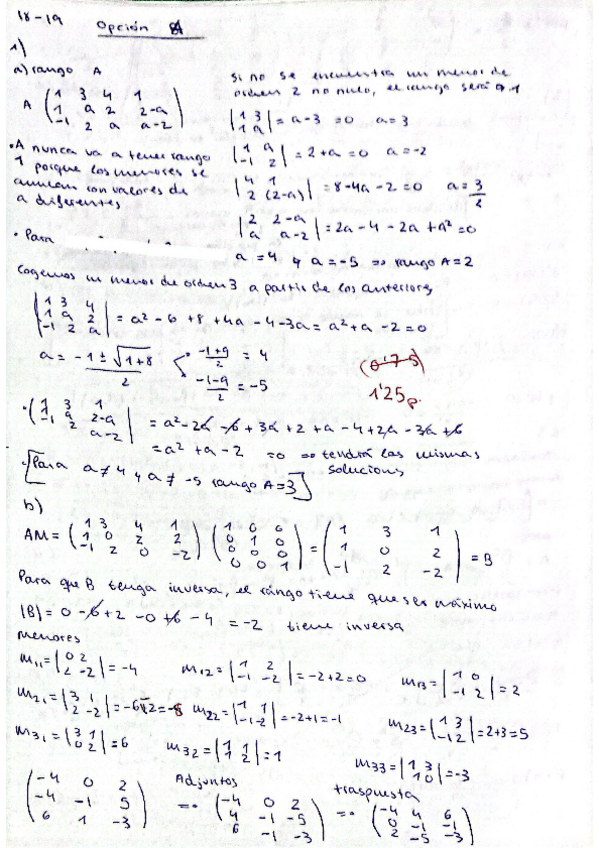 18-19
Opción A
1)
a) rango A
A ( 1 3 4 1
1 a 2 2-a
-1 2 a a-2 )
Si no se encuentra un menor de
orden 2 no nulo, el rango será 1
|1 3
1 a| = a-3 =0 a=3
• A nunca va a tener rango
1 porque los menores se
anulan con valores de
a diferentes
|1 a
-1 2| = 2+a =0 a=-2
|4 1
2 (2-a)| = 8-4a-2=0 a=3/2
|2 2-a
a a-2| = 2a-4-2a+a²=0
• Para
a=4 y a=-5 => rango A=2
Cogemos un menor de orden 3 a partir de los anteriores
|1 3 4
1 a 2
-1 2 a| = a²-6+8+4a-4-3a= a²+a-2=0
a= -1±√1+8 / 2
-1+9 / 2 = 4
-1-9 / 2 = -5
(0'75)
1'25p.
|1 3 1
1 a 2-a
-1 2 a-2| = a²-2a-6+3a+2+a-4+2a-3a+6
=a²+a-2 =0 => tendrá las mismas
soluciones
[Para a≠4 y a≠-5 rango A=3]
b)
AM= ( 1 3 4 1
1 0 2 2
-1 2 0 -2 ) ( 1 0 0
0 1 0
0 0 0
0 0 1 ) = ( 1 3 1
1 0 2
-1 2 -2 ) = B
Para que B tenga inversa, el rango tiene que ser máximo
|B|= 0-6+2-0+6-4 =-2 tiene inversa
Menores
m₁₁=|0 2
2 -2|=-4
m₁₂=|1 2
-1 -2|=-2+2=0
m₁₃=|1 0
-1 2|=2
m₂₁=|3 1
2 -2|=-6
m₂₂=|1 1
-1 -2|=-2+1=-1
m₂₃=|1 3
-1 2|=2+3=5
m₃₁=|3 1
0 2|=6
m₃₂=|1 1
1 2|=1
m₃₃=|1 3
1 0|=-3
( -4 0 2
-4 -1 5
6 1 -3 )
Adjuntos
=> ( -4 0 2
4 -1 -5
6 -1 -3 )
traspuesta
=> ( -4 4 6
0 -1 -1
2 -5 -3 )